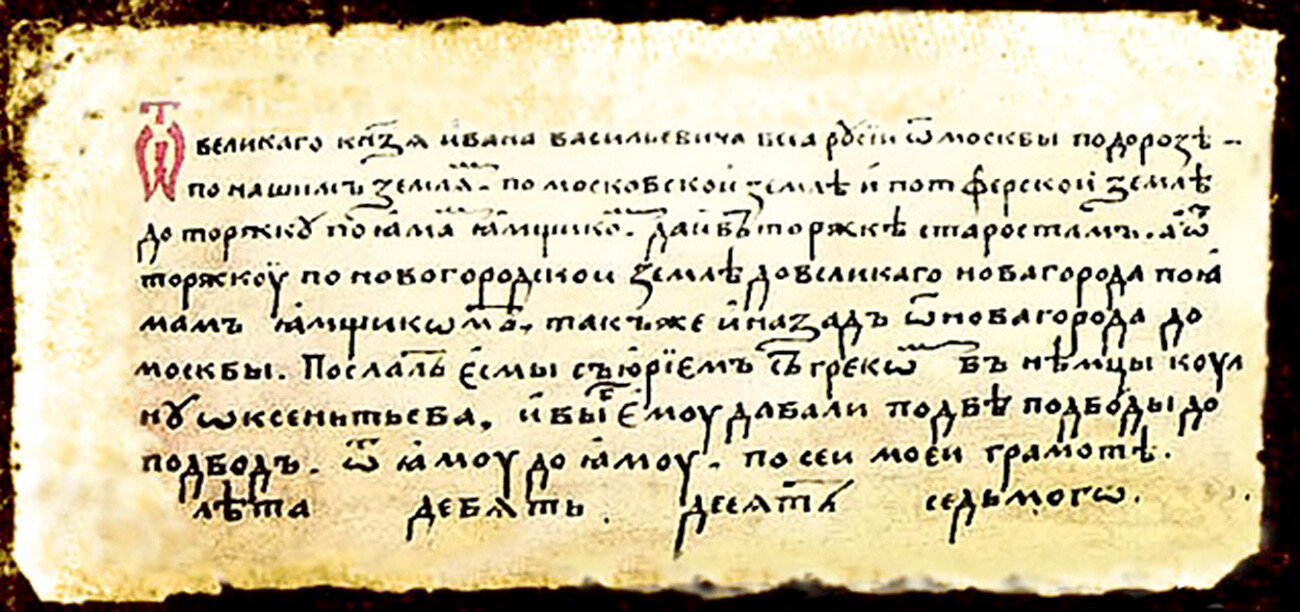 Ѿ великаго кн҃зѧ і҆вана васильевича всеа рꙋсїи ѿ москвы по дорозѣ –
по нашимъ землѧ. по московскои землѣ и҆ по тферской землѣ
до торжкꙋ по ꙗ҆ма ꙗ҆мщико. дай въ торжкѣ старостамъ. а҆ ѿ
торжкоу по новогородскои землѣ до великаго новагорода по ꙗ҆
мамъ ꙗ҆мщикѡмъ. такъже и҆ назадъ ѿ новагорода до
москвы. Послалъ є҆смы съ ю҆рїемъ съ грекѡ въ нѣмцы коул
нꙋ ѡксентьева. и҆ вы є҆моу давали по двѣ подводы до
подводъ. ѿ ꙗ҆моу до ꙗ҆моу. по сеи моеи грамотѣ.
лѣта девѧть. десѧтъ седьмогѡ.